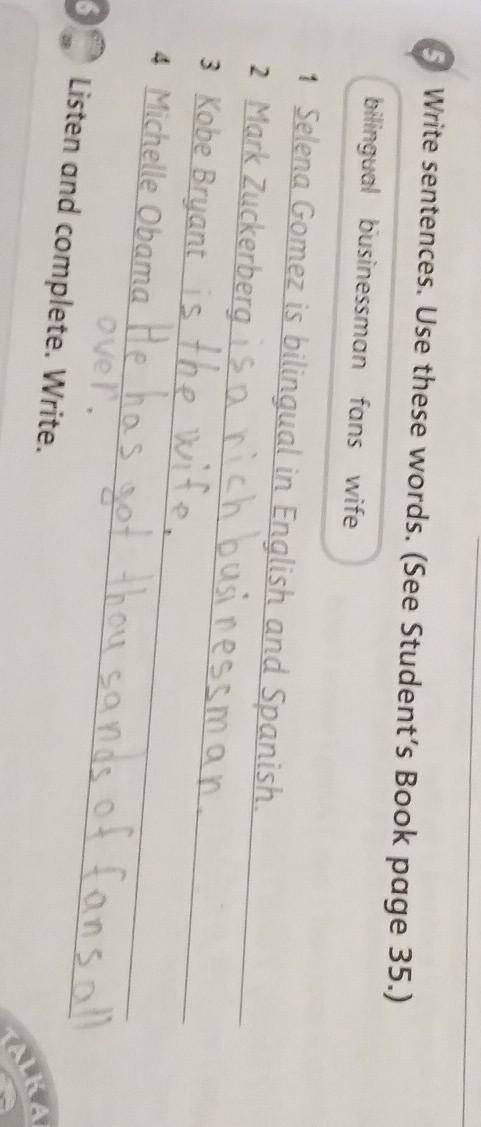 5 Write sentences. Use these words. (See Student's Book page 35.)
bilingual businessman fans wife
1 Selena Gomez is bilingual in English and Spanish.
2 Mark Zuckerberg is a rich businessman.
3 Kobe Bryant is the wife.
4 Michelle Obama He has got thousands of fans all
over.
6 Listen and complete. Write.
TALK A